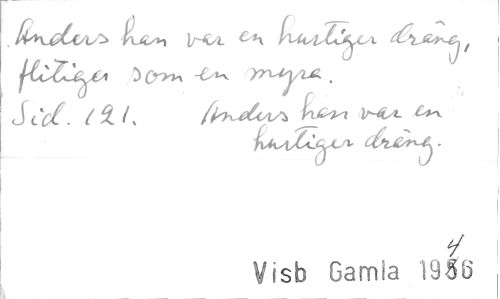 Anders han var en hurtiger dräng,
flitiger som en myra.
Sid. 121. Anders han var en
hurtiger dräng.
4
Visb Gamla 1956